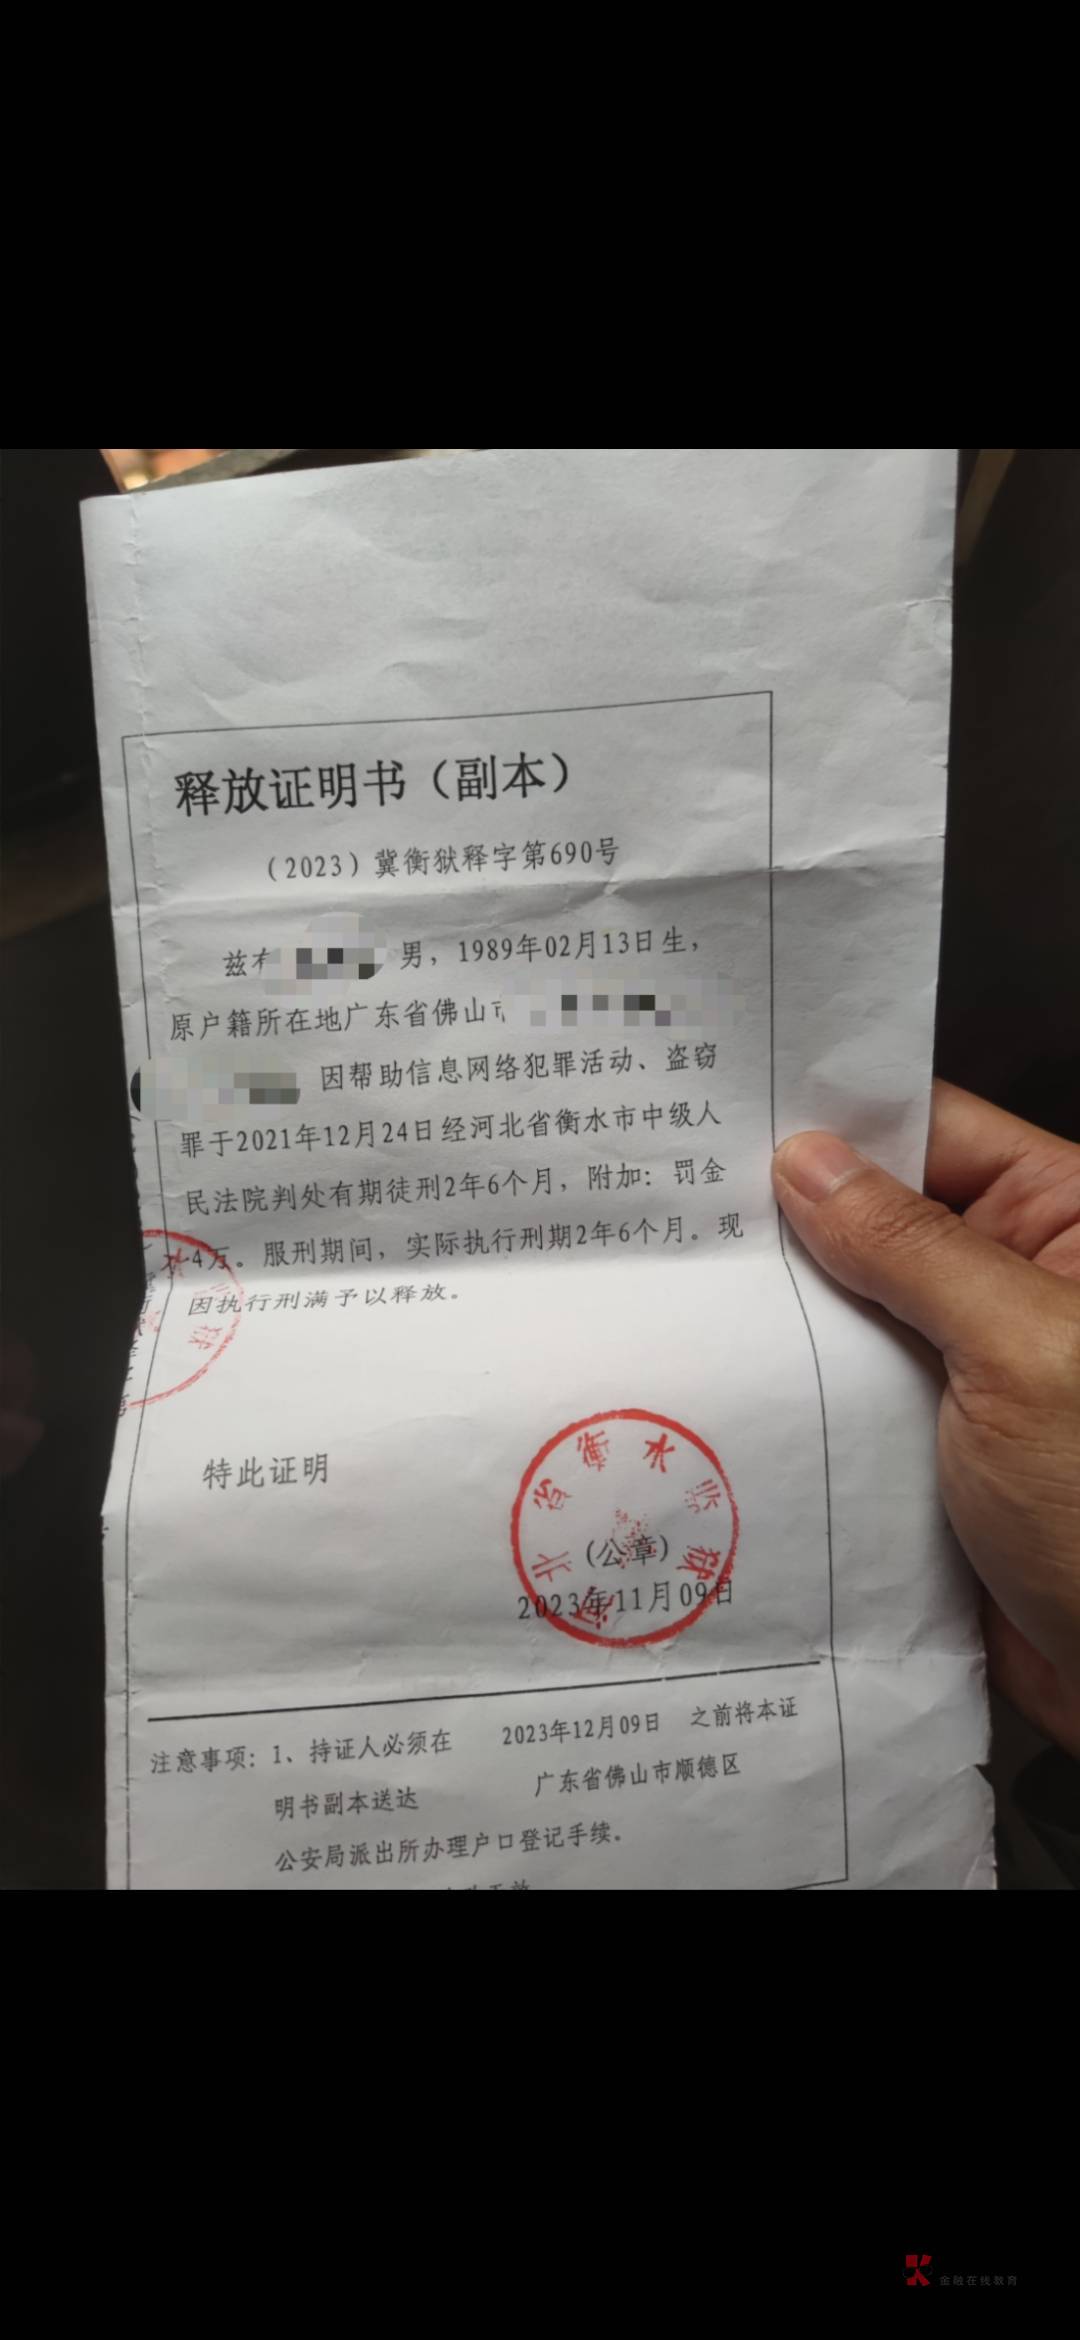 释放证明书（副本）
（2023）冀衡狱释字第690号
兹有 男，1989年02月13日生，
原户籍所在地广东省佛山市
因帮助信息网络犯罪活动、盗窃
罪于2021年12月24日经河北省衡水市中级人
民法院判处有期徒刑2年6个月，附加：罚金
4万。服刑期间，实际执行刑期2年6个月。现
因执行刑满予以释放。
特此证明
河北省衡水监狱
（公章）
2023年11月09日
注意事项：1、持证人必须在 2023年12月09日 之前将本证
明书副本送达 广东省佛山市顺德区
公安局派出所办理户口登记手续。
金融在线教育